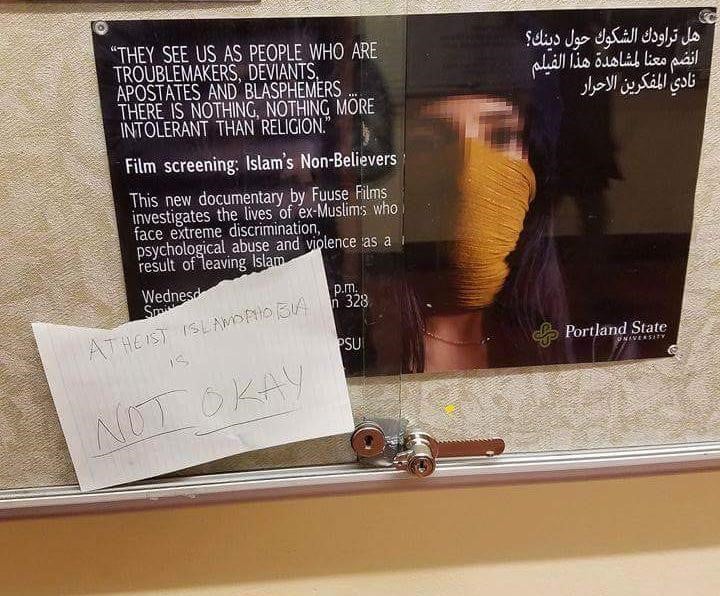 “THEY SEE US AS PEOPLE WHO ARE
TROUBLEMAKERS, DEVIANTS,
APOSTATES AND BLASPHEMERS ...
THERE IS NOTHING, NOTHING MORE
INTOLERANT THAN RELIGION.”
Film screening: Islam's Non-Believers
This new documentary by Fuuse Films
investigates the lives of ex-Muslims who
face extreme discrimination,
psychological abuse and violence as a
result of leaving Islam
p.m.
328
PSU
هل تراودك الشكوك حول دينك؟
انضم معنا لمشاهدة هذا الفيلم
نادي المفكرين الاحرار
Portland State
UNIVERSITY
ATHEIST ISLAMOPHOBIA
IS
NOT OKAY